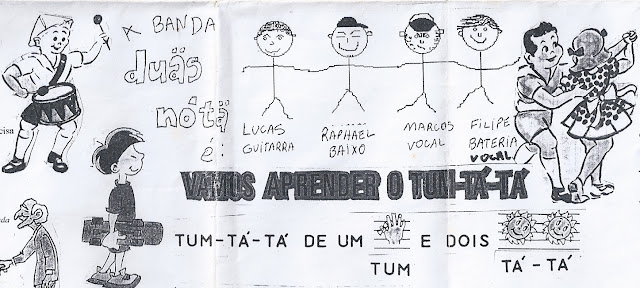 A BANDA
duäs
nótä
é:
LUCAS
GUITARRA
RAPHAEL
BAIXO
MARCOS
VOCAL
FILIPE
BATERIA
VOCAL
VAMOS APRENDER O TUM-TÁ-TÁ
TUM-TÁ-TÁ DE UM E DOIS
TUM TÁ-TÁ